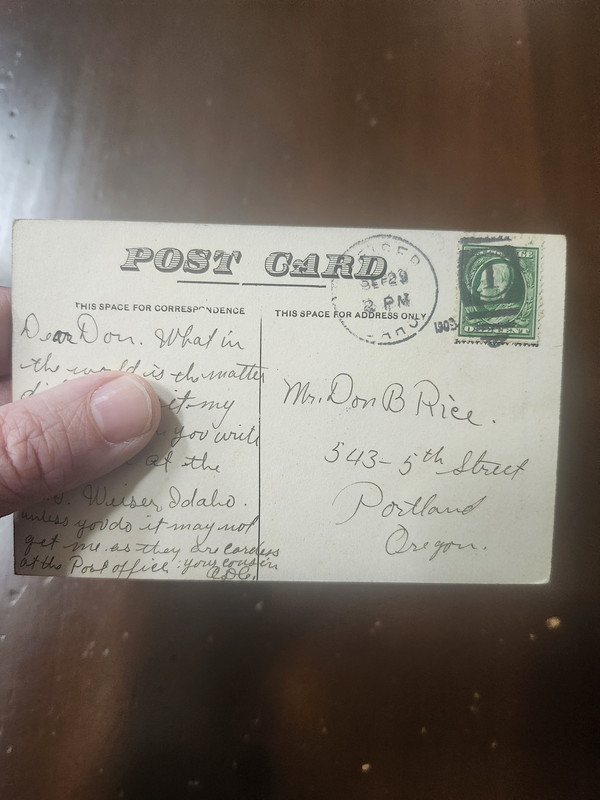 POST CARD
THIS SPACE FOR CORRESPONDENCE
THIS SPACE FOR ADDRESS ONLY
SEP 29
2 PM
1
ONE CENT
Dear Don. What in
the world is the matter
it my
you write
at the
Weiser, Idaho.
unless you do it may not
get me as they are careless
at the Post office. your cousin
Mr. Don B Rice.
543 - 5th Street
Portland
Oregon.